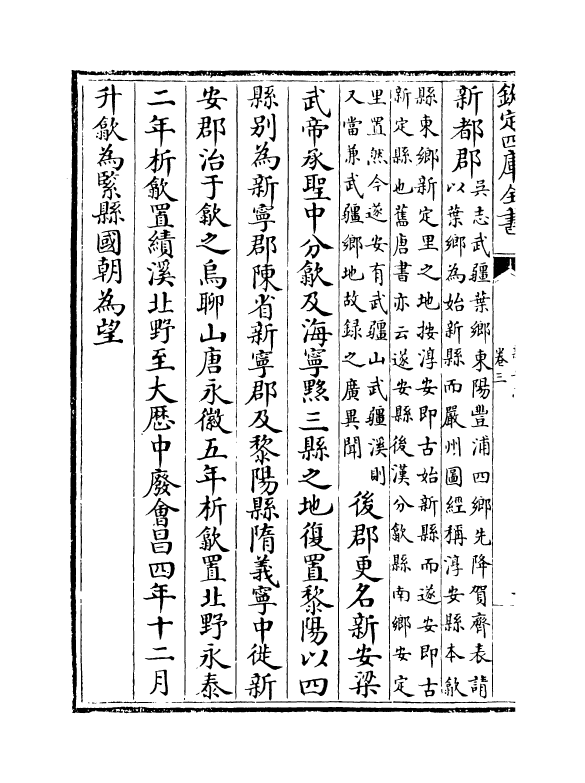 欽定四庫全書
卷三
新都郡
吳志武疆葉鄉東陽豐浦四鄉先降賀齊表請
以葉鄉為始新縣而嚴州圖經稱淳安縣本歙
縣東鄉新定里之地按淳安即古始新縣而遂安即古
新定縣也舊唐書亦云遂安縣後漢分歙縣南鄉安定
里置然今遂安有武疆山武疆溪則
又當兼武疆鄉地故録之廣異聞
後郡更名新安梁
武帝承聖中分歙及海寧黟三縣之地復置黎陽以四
縣别為新寧郡陳省新寧郡及黎陽縣隋義寧中徙新
安郡治于歙之烏聊山唐永徽五年析歙置北野永泰
二年析歙置績溪北野至大歷中廢會昌四年十二月
升歙為緊縣國朝為望